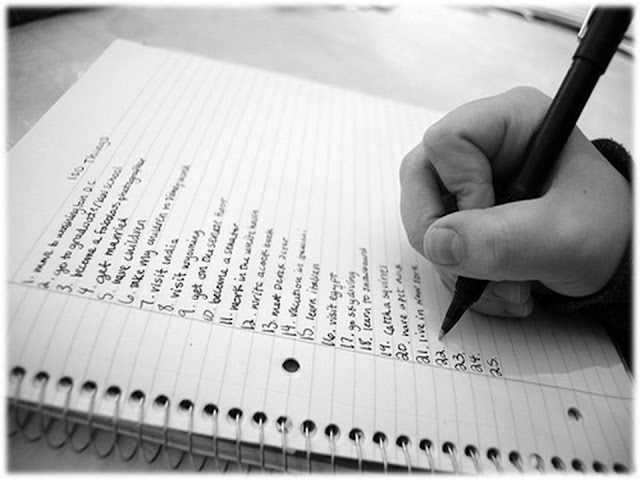 100 Things
1. move to washington D.C.
2. go to graduate/law school
3. become a fabulous photographer
4. get married
5. have children
6. take my children to disney world
7. visit india
8. visit wyoming
9. get on the senate floor
10. become a senator
11. work in the white house
12. write a cook book
13. meet Derek Jeter
14. vacation in hawaii
15. learn italian
16. visit egypt
17. go skydiving
18. learn to snowboard
19. catch a squirrel
20. have a pet
21. live in new york
22.
23.
24.
25.